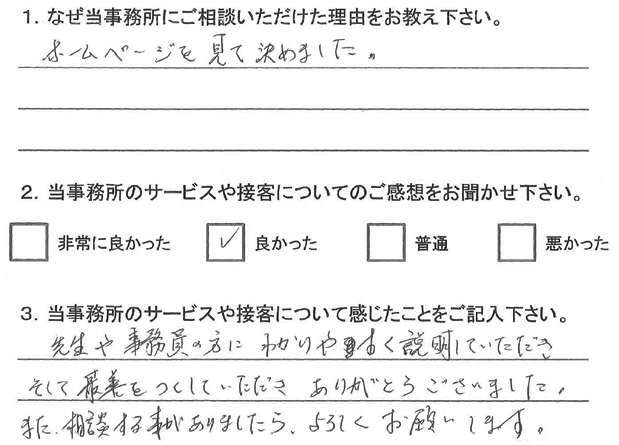 1. なぜ当事務所にご相談いただけた理由をお教え下さい。
ホームページを見て決めました。
2. 当事務所のサービスや接客についてのご感想をお聞かせ下さい。
非常に良かった 良かった 普通 悪かった
3. 当事務所のサービスや接客について感じたことをご記入下さい。
先生や事務員の方にわかりやすく説明していただき
そして最善をつくしていただき ありがとうございました。
また、相談する事がありましたら、よろしくお願いします。